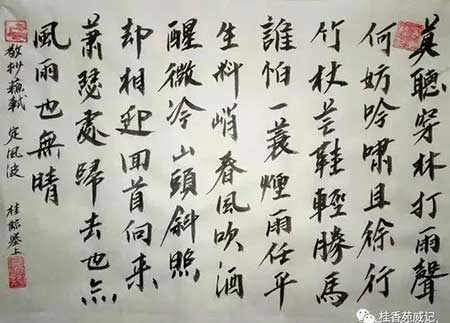 莫聽穿林打雨聲
何妨吟嘯且徐行
竹杖芒鞋輕勝馬
誰怕一蓑煙雨任平
生料峭春風吹酒
醒微冷山頭斜照
却相迎回首向来
蕭瑟處歸去也
風雨也無晴
敬抄蘇軾 定風波 桂
桂香苑威记